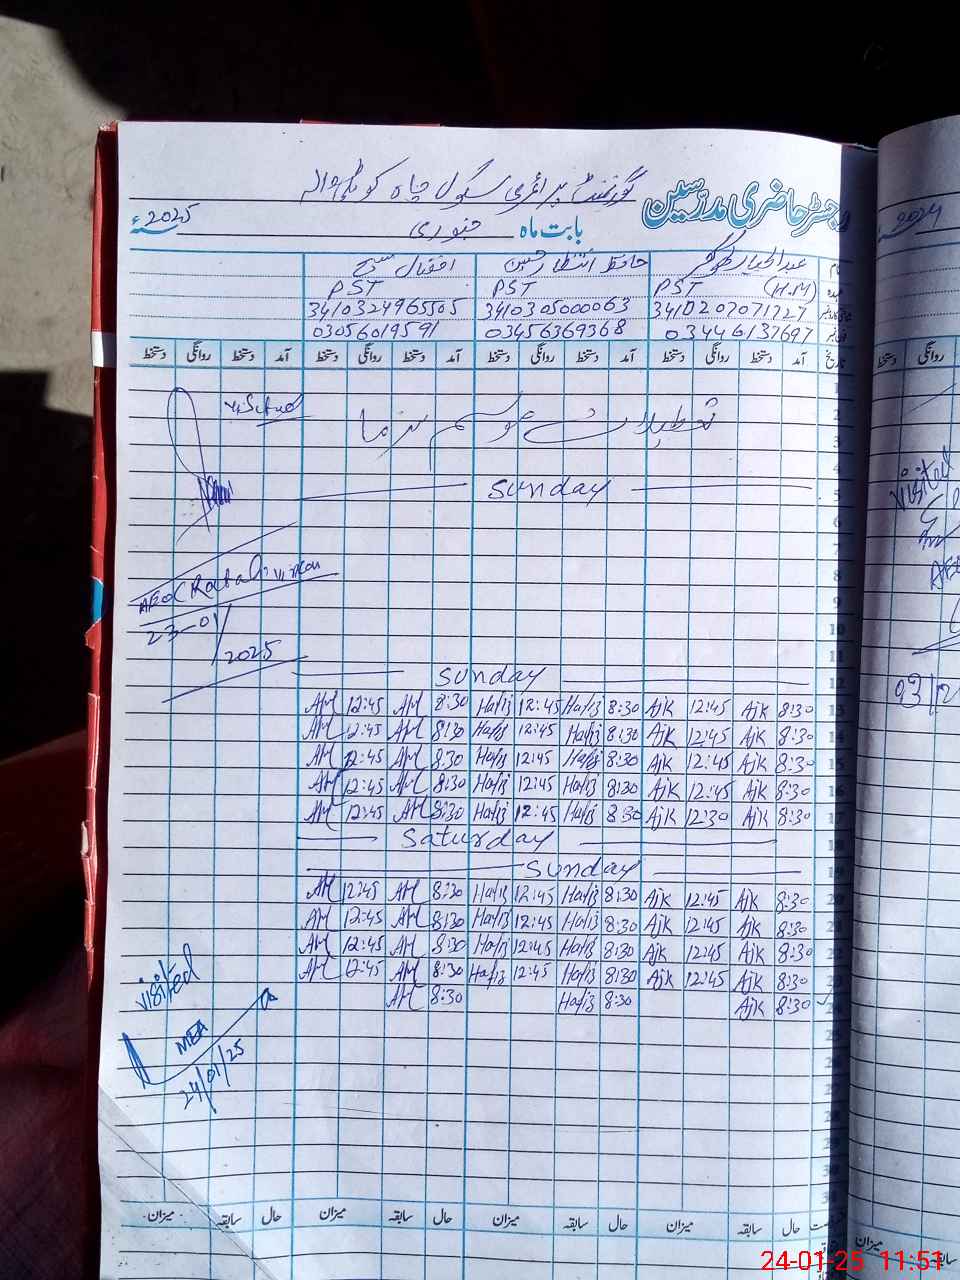 رجسٹر حاضری مدرسین گورنمنٹ پرائمری سکول چاہ کوٹلہ والہ
بابت ماہ جنوری 2025ء
نام عبدالجبار کھوکھر حافظ انتظار حسین افتخار مسیح
عہدہ PST (H.M) PST PST
3410207071727 3410305000063 3410324965505
03446137697 03456369368 03056019591
تاریخ آمد دستخط روانگی دستخط آمد دستخط روانگی دستخط آمد دستخط روانگی دستخط آمد دستخط روانگی دستخط
1
2 تعطیلات موسم سرما Visited
3
4
5 Sunday
6
7
8 AEO
9
10 23-01/2025
11
12 Sunday
13 AM 12:45 AM 8:30 Hafiz 12:45 Hafiz 8:30 AJK 12:45 AJK 8:30
14 AM 12:45 AM 8:30 Hafiz 12:45 Hafiz 8:30 AJK 12:45 AJK 8:30
15 AM 12:45 AM 8:30 Hafiz 12:45 Hafiz 8:30 AJK 12:45 AJK 8:30
16 AM 12:45 AM 8:30 Hafiz 12:45 Hafiz 8:30 AJK 12:45 AJK 8:30
17 AM 12:45 AM 8:30 Hafiz 12:45 Hafiz 8:30 AJK 12:30 AJK 8:30
18 Saturday
19 Sunday
20 AM 12:45 AM 8:30 Hafiz 12:45 Hafiz 8:30 AJK 12:45 AJK 8:30
21 AM 12:45 AM 8:30 Hafiz 12:45 Hafiz 8:30 AJK 12:45 AJK 8:30
22 AM 12:45 AM 8:30 Hafiz 12:45 Hafiz 8:30 AJK 12:45 AJK 8:30
23 AM 12:45 AM 8:30 Hafiz 12:45 Hafiz 8:30 AJK 12:45 AJK 8:30
24 AM 8:30 Hafiz 8:30 AJK 8:30
25
26
27
28
29
30
31
Visited
MEA
24/01/25
حال سابقہ میزان حال سابقہ میزان حال سابقہ میزان حال سابقہ میزان
2024
روانگی دستخط
Visited
03/2
میزان
24-01-25 11:51